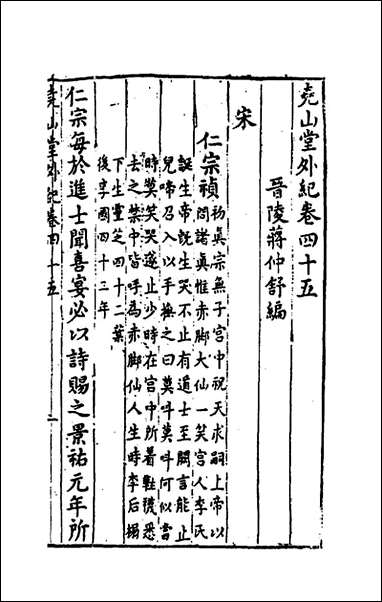 堯山堂外紀卷四十五
晉陵蔣仲舒編
宋
仁宗禎
初真宗無子宮中祝天求嗣上帝以
問諸真惟赤脚大仙一笑宮人李氏
誕生帝旣生哭不止有道士至闕言能止
兒啼召入以手撫之曰莫呌莫呌何似當
時莫笑哭遂止少時在宮中所著鞋襪悉
去之禁中皆呼為赤脚仙人生時李后榻
下生靈芝四十二葉
後享國四十二年
仁宗每於進士聞喜宴必以詩賜之景祐元年所
堯山堂外紀卷四十五
一